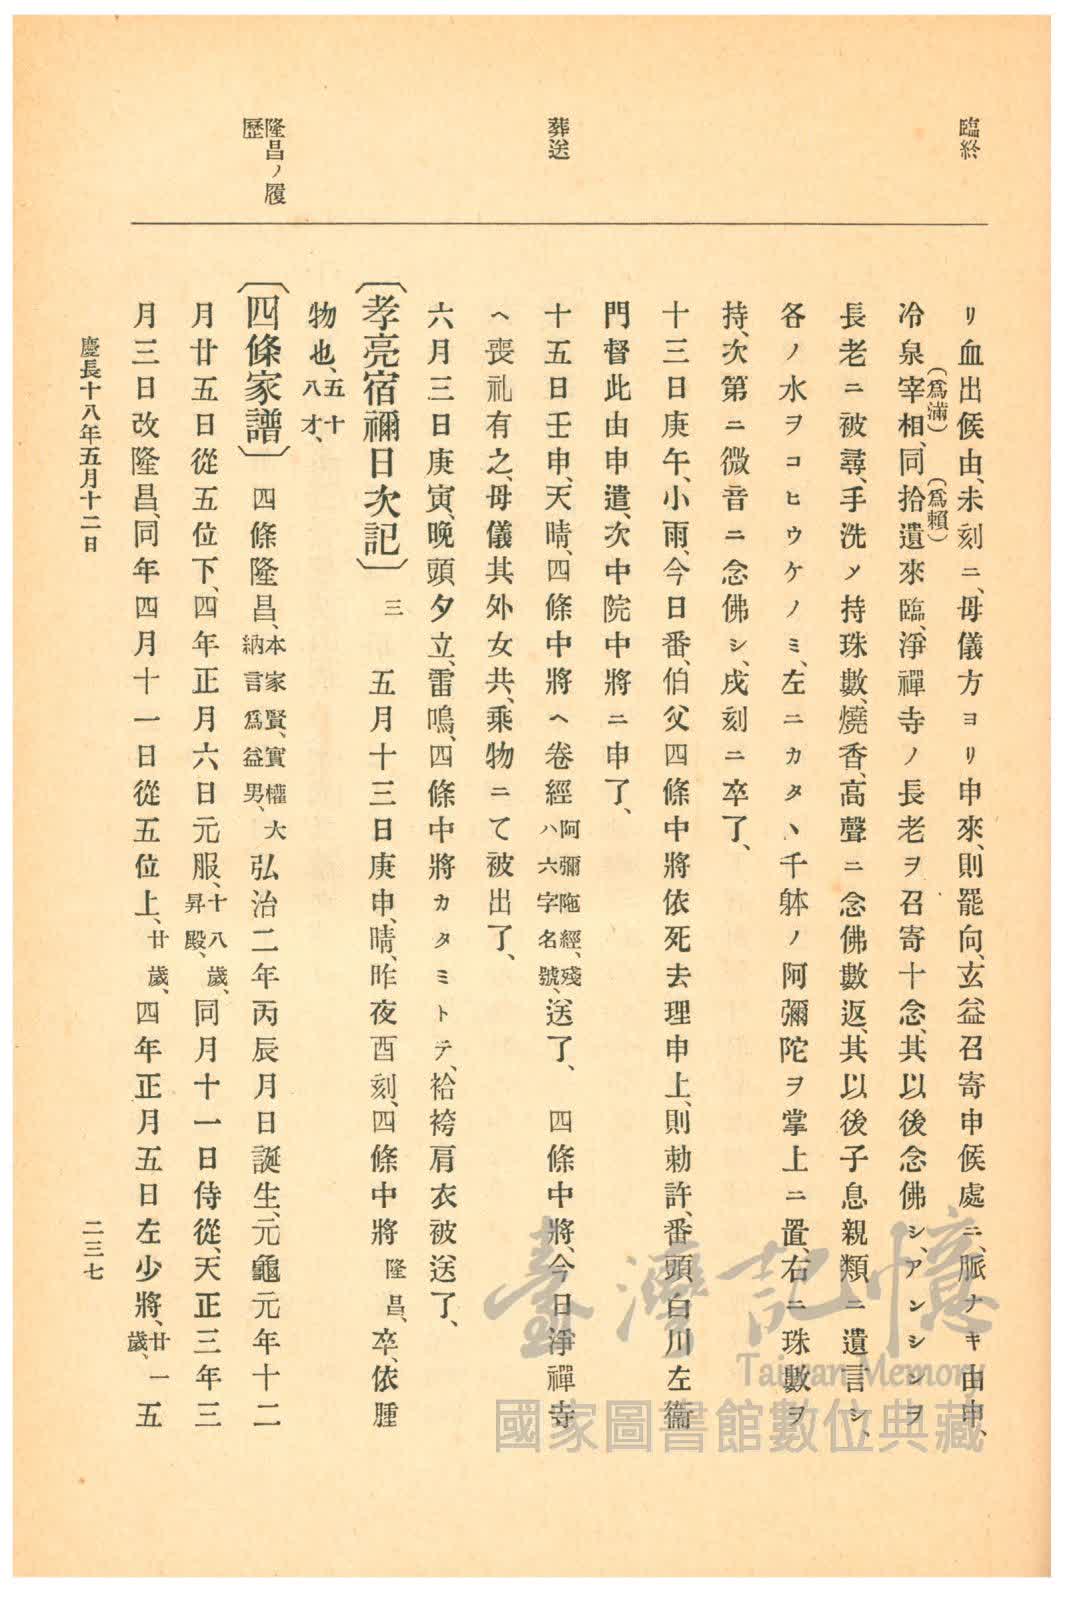 臨終
葬送
隆昌ノ履
歷
リ血出候由、未刻ニ、母儀方ヨリ申來、則罷向、玄益召寄申候處ニ、脈ナキ由申、
冷泉宰相、(爲滿)同拾遺(爲賴)來臨、淨禪寺ノ長老ヲ召寄十念、其以後念佛シ、アンシンヲ
長老ニ被尋、手洗〆持珠數、燒香、高聲ニ念佛數返、其以後子息親類ニ遺言シ、
各ノ水ヲコヒウケノミ、左ニカタヽ千躰ノ阿彌陀ヲ掌上ニ置、右ニ珠數ヲ
持、次第ニ微音ニ念佛シ、戌刻ニ卒了、
十三日庚午、小雨、今日番、伯父四條中將依死去理申上、則勅許、番頭白川左衞
門督此由申遣、次中院中將ニ申了、
十五日壬申、天晴、四條中將ヘ卷經阿彌陁經、殘ハ六字名號、送了、　四條中將、今日淨禪寺
ヘ喪礼有之、母儀其外女共、乘物ニて被出了、
六月三日庚寅、晚頭夕立、雷鳴、四條中將カタミトテ、袷袴肩衣被送了、
〔孝亮宿禰日次記〕三　五月十三日庚申、晴、昨夜酉刻、四條中將隆昌、卒、依腫
物也、五十八才、
〔四條家譜〕四條隆昌、本家賢、實權大納言爲益男、弘治二年丙辰月日誕生、元龜元年十二
月廿五日從五位下、四年正月六日元服、十八歲、昇殿、同月十一日侍從、天正三年三
月三日改隆昌、同年四月十一日從五位上、廿歲、四年正月五日左少將、廿一歲、五
慶長十八年五月十二日
二三七
臺灣記憶
Taiwan Memory
國家圖書館數位典藏